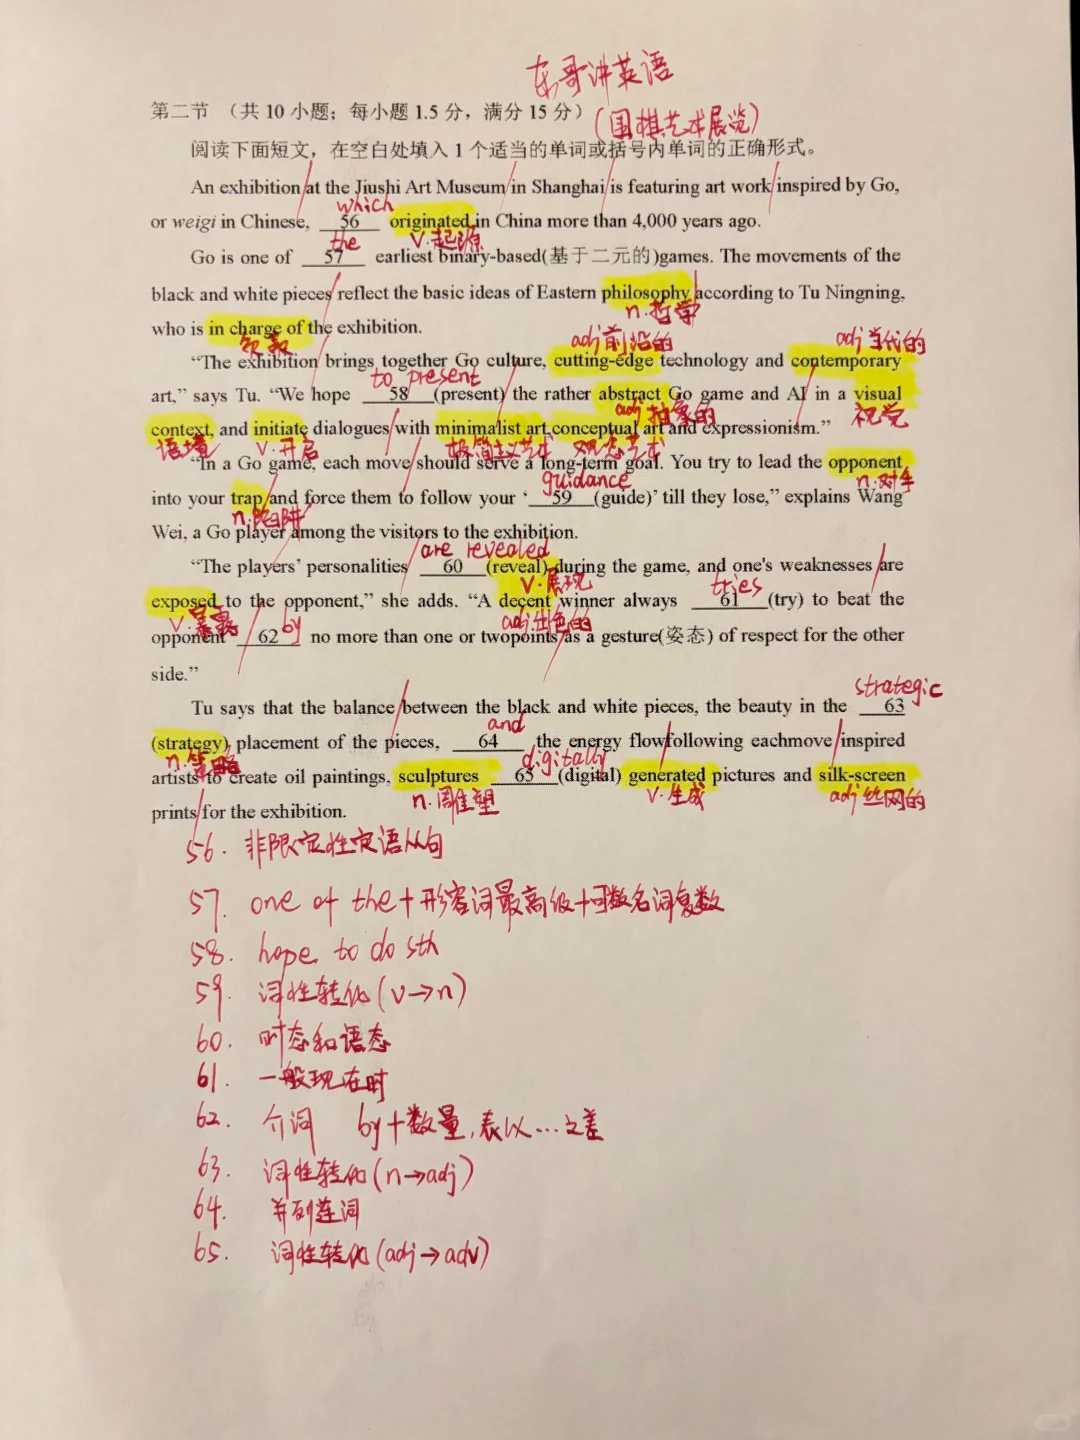 东哥讲英语
第二节 （共 10 小题；每小题 1.5 分，满分 15 分）
(围棋艺术展览)
阅读下面短文，在空白处填入 1 个适当的单词或括号内单词的正确形式。
An exhibition at the Jiushi Art Museum in Shanghai is featuring art work inspired by Go,
which
or weiqi in Chinese, 56 originated in China more than 4,000 years ago.
the v.起源
Go is one of 57 earliest binary-based(基于二元的)games. The movements of the
black and white pieces reflect the basic ideas of Eastern philosophy according to Tu Ningning,
n.哲学
who is in charge of the exhibition.
负责 adj前沿的 adj当代的
“The exhibition brings together Go culture, cutting-edge technology and contemporary
to present
art,” says Tu. “We hope 58 (present) the rather abstract Go game and AI in a visual
adj抽象的 视觉
context, and initiate dialogues with minimalist art,conceptual art and expressionism.”
语境 v.开启 极简主义艺术 观念艺术
“In a Go game, each move should serve a long-term goal. You try to lead the opponent
guidance n.对手
into your trap and force them to follow your ‘ 59 (guide)’ till they lose,” explains Wang
n.陷阱
Wei, a Go player among the visitors to the exhibition.
are revealed
“The players’ personalities 60 (reveal) during the game, and one's weaknesses are
v.展现 tries
exposed to the opponent,” she adds. “A decent winner always 61 (try) to beat the
v.暴露 by adj.出色的
opponent 62 no more than one or twopoints as a gesture(姿态) of respect for the other
side.”
strategic
Tu says that the balance between the black and white pieces, the beauty in the 63
and
(strategy) placement of the pieces, 64 the energy flowfollowing eachmove inspired
n.策略 digitally
artists to create oil paintings, sculptures 65 (digital) generated pictures and silk-screen
n.雕塑 v.生成 adj丝网的
prints for the exhibition.
56. 非限定性定语从句
57. one of the+形容词最高级+可数名词复数
58. hope to do sth
59. 词性转化(v→n)
60. 时态和语态
61. 一般现在时
62. 介词 by+数量,表以…之差
63. 词性转化(n→adj)
64. 并列连词
65. 词性转化(adj→adv)